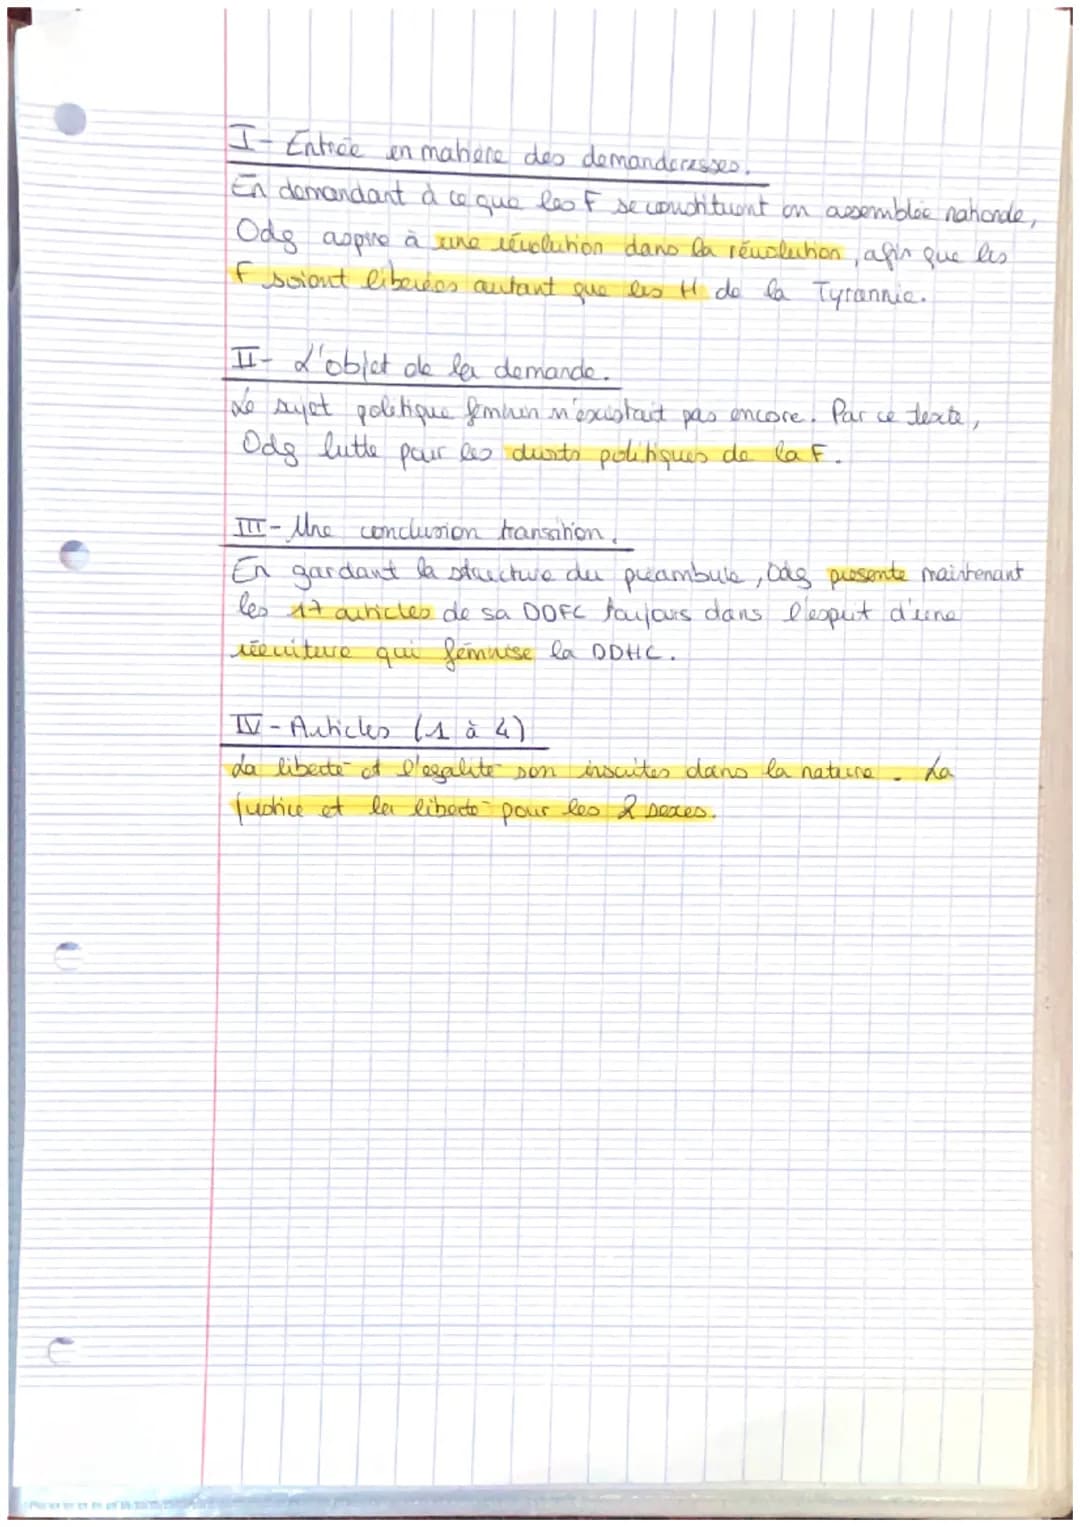 I- Entrée en matière des demanderesses.
En demandant à ce que les F se constituent en assemblée nationale,
Odg aspire à une révolution dans la révolution, afin que les
F soient liberées autant que les H de la Tyrannie.
II- L'objet de la demande.
Le sujet politique féminin n'existait pas encore. Par ce texte,
Odg lutte pour les droits politiques de la F.
III- Une conclusion transition.
En gardant la structure du préambule, Odg présente maintenant
les 17 articles de sa DDFC toujours dans l'esprit d'une
réécriture qui féminise la DDHC.
IV- Articles (1 à 4)
La liberté et l'egalité son inscrites dans la nature. La
justice et la liberté pour les 2 sexes.